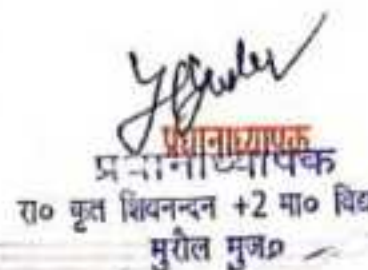 प्रधानाध्यापक
प्रधानाध्यापक
रा० कृत शिवनन्दन +2 मा० विद्य
मुरौल मुज०